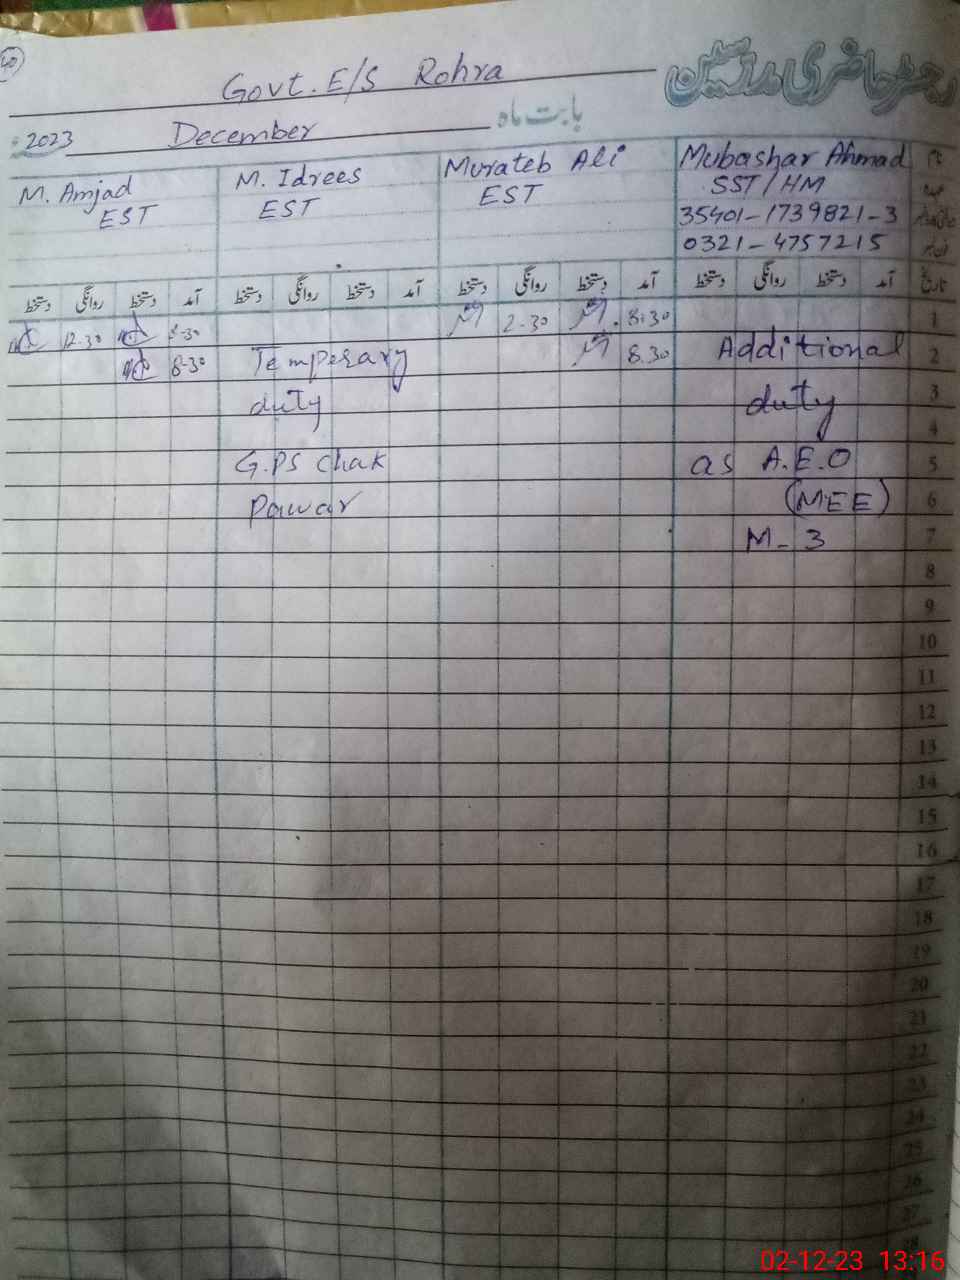 40
رجسٹر حاضری مدرسین
Govt. E/S Rohra
بابت ماہ
December
2023
Mubashar Ahmad
SST/HM
35401-1739821-3
0321-4757215
Murateb Ali
EST
M. Idrees
EST
M. Amjad
EST
نام
عہدہ
تاریخ آمد دستخط روانگی دستخط آمد دستخط روانگی دستخط آمد دستخط روانگی دستخط آمد دستخط روانگی دستخط
1 8:30 2-30 8-30 12-30
2 Additional 8.30 Temperary 8-30
3 duty duty
4
5 as A.E.O G.PS Chak
6 (MEE) Pawar
7 M-3
8
9
10
11
12
13
14
15
16
17
18
19
20
21
22
23
24
25
26
27
28
02-12-23 13:16